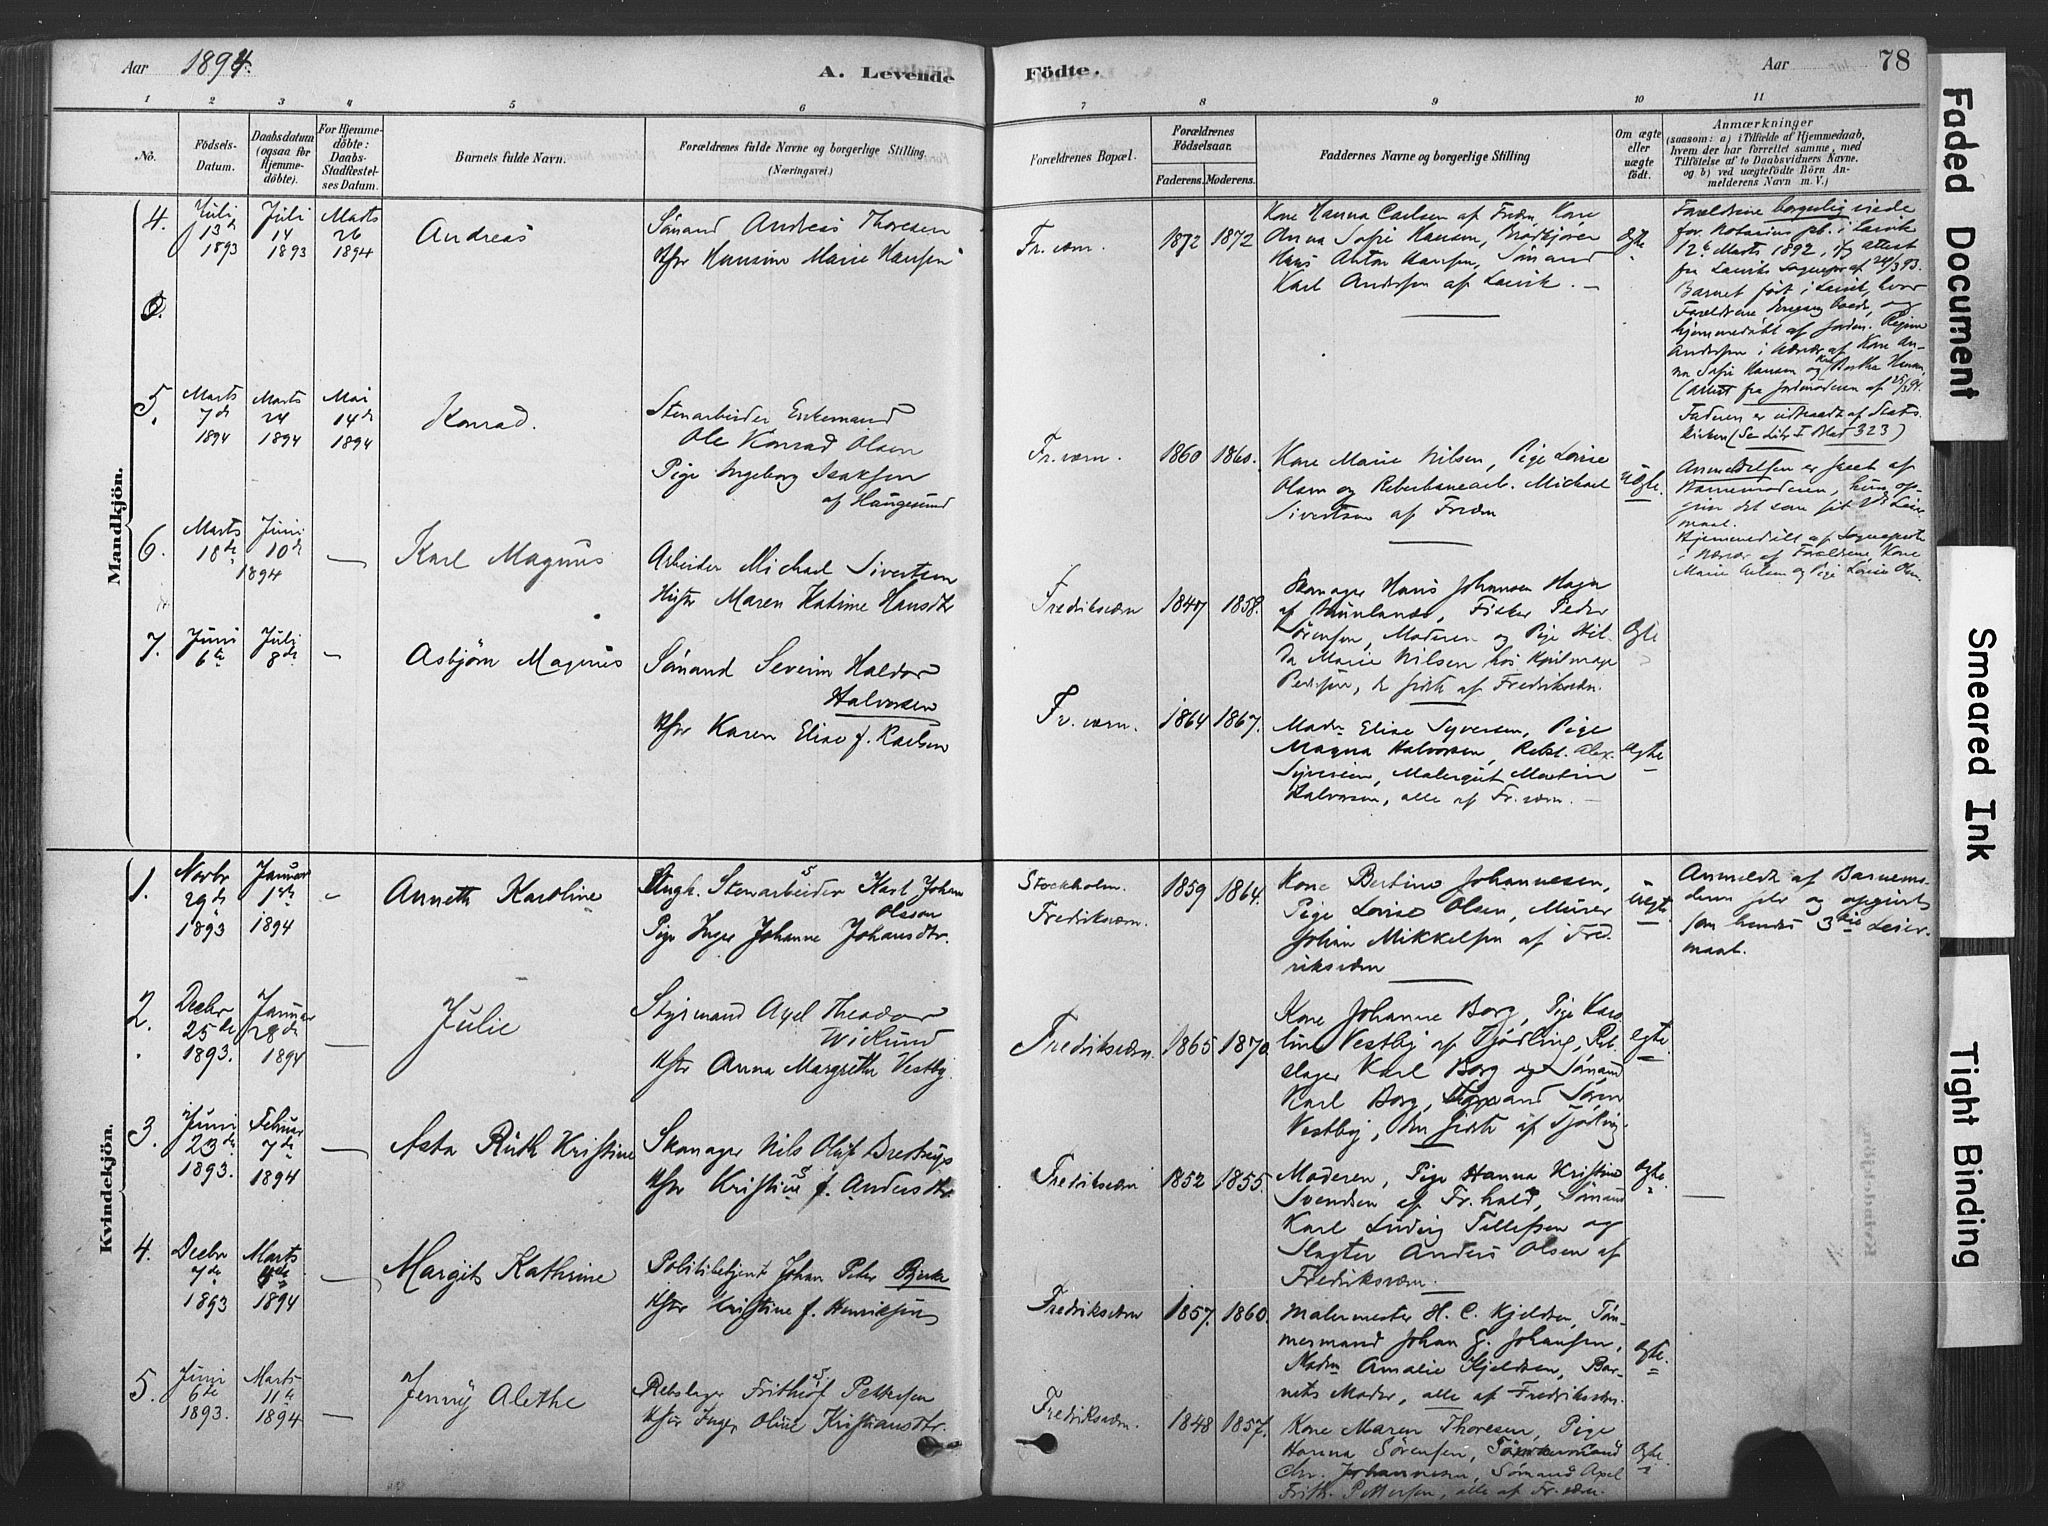 Aar 1894.
A. Levende
Födte.
Aar
78
1
2
3
4
5
6
7
8
9
10
11
No.
Födsels-
Datum.
Daabsdatum
(ogsaa for
Hjemme-
döbte).
For Hjemme-
döbte:
Daabs-
Stadfæstel-
ses Datum.
Barnets fulde Navn.
Forældrenes fulde Navne og borgerlige Stilling
(Næringsvei.)
Forældrenes Bopæl.
Forældrenes
Födselsaar.
Faderens. Moderens.
Faddernes Navne og borgerlige Stilling
Om ægte
eller
uægte
födt.
Anmærkninger
(saasom: a) i Tilfælde af Hjemmedaab,
hvem der har forrettet samme, med
Tilföielse af to Daabsvidners Navne.
og b) ved uægtefödte Börn An-
melderens Navn m. V.)
Mandkjön.
4.
Juli
13de
1893
Juli
14
1893
Marts
26
1894
Andreas
Sømand Andreas Thoresen
Hstr Hansine Marie Hansen
Fr. værn.
1872
1872
Kone Hanna Carlsen af Fr.værn, Kone
Anna Sofie Hansen, Brødkjører
Hans Anton Hansen, Sømand
Karl Andersen af Laurvik. —
Ægte
Forældrene borgerlig viede
for Notarius pb. i Larvik
12te Marts 1892, attest
fra Larviks Sognepr. af 24/3 93.
Barnet født i Larvik, hvor
Forældrene dengang boede, og
hjemmedøbt af Jordm.
Andersen i Nærvær af Kone An-
na Sofie Hansen og Kone Bertha Hansen,
(attest fra Jordmoderen af
Faderen er udtraadt af Stats-
kirken (Se Litr. I Blad 323)
5.
Marts
7de
1894
Marts
24
1894
Mai
14de
1894
Konrad.
Stenarbeider Enkemand
Ole Konrad Olsen
Pige Ingeborg Isaksen
af Haugesund
Fr. værn.
1860
1860.
Kone Marie Nilsen, Pige Lovise
Olsen og Reberbanearb. Michael
Sivertsen af Fr.værn
Uægte.
Anmeldelsen er skeet af
Barnemoderen, hun op-
giver det som sit Leier-
maal.
Hjemmedøbt af Sognepresten
i Nærvær af Forældrene, Kone
Marie Nilsen og Pige Lovise Olsen.
6.
Marts
18de
Juni
10de
1894
—
Karl Magnus
Arbeider Michael Sivertsen
Hustr Maren Katrine Hansdtr
Fredriksværn
1847
1858.
Skomager Hans Johansen Hagen
af Brunlanes, Fisker Peder
Sørensen, Moderen og Pige Hil-
da Marie Nilsen hos Kjøbmand
Pedersen, de sidste af Fredriksværn.
Ægte
7.
Juni
6te
Juli
8de
—
Asbjørn Magnus
Sømand Severin Haldor
Halvorsen
Hstr Karen Elise f. Karlsen
Fr. værn.
1864
1867.
Madm Elise Syversen, Pige
Magna Halvorsen, Rebsl. Alex.
Syversen, Malergut Martin
Halvorsen, alle af Fr. værn. —
Ægte
Kvindekjön.
1.
Novbr
29de
1893
Januar
1ste
1894
—
Anneth Karoline
Ungk. Stenarbeider Karl Johan
Olsson
Pige Inger Johanne Johansdtr.
Stockholm.
Fredriksværn.
1859
1864.
Kone Bertine Johannesen,
Pige Lovise Olsen, Murer
Johan Mikkelsen af Fred-
riksværn
Uægte
Anmeldt af Barnemo-
deren selv og opgivet
som hendes 3die Leier-
maal.
2.
Decbr
25de
1893.
Januar
28de
1894
—
Julie
Styrmand Axel Theodor
Wiklund
Hstr Anna Margrethe Vestby.
Fredriksværn.
1865
1870.
Kone Johanne Borg, Pige Karo-
line Vestby af Tjødling, Reb-
slager Karl Borg og Sømand
Karl Borg, Sømand Søren
Vestby, den sidste af Tjødling.
Ægte.
3.
Juni
23de
1893.
Februar
7de
1894
—
Asta Ruth Kristine
Skomager Nils Oluf Bretrup
Hstr Kristine f. Andersdtr
Fredriksværn
1852
1855.
Moderen, Pige Hanna Kristine
Svendsen af Fr.hald, Sømand
Karl Ludvig Tellefsen og
Slagter Anders Olsen af
Fredriksværn.
Ægte.
—
4.
Decbr
7de
1893
Marts
1894
—
Margit Kathrine
Politibetjent Johan Peter Bjerke
Hstr Kristine f. Henriksen
Fredriksværn
1857.
1860.
Malermester H. C. Kjeldsen, Tøm-
mermand Johan G. Johansen,
Madm Amalie Kjeldsen, Bar-
nets Moder, alle af Fredriksværn.
Ægte.
5.
Juni
6te
1893.
Marts
11te
1894
—
Jenny Alethe
Rebslager Frithjof Pettersen
Hstr Inger Oline Kristiansdtr.
Fredriksværn.
1848
1857.
Kone Maren Thoresen, Pige
Hanna Sørensen, Tømmermand
Chr. Johannesen, Sømand Axel
Frith. Pettersen, alle af Fr. værn.
Ægte.
Faded Document
Smeared Ink
Tight Binding